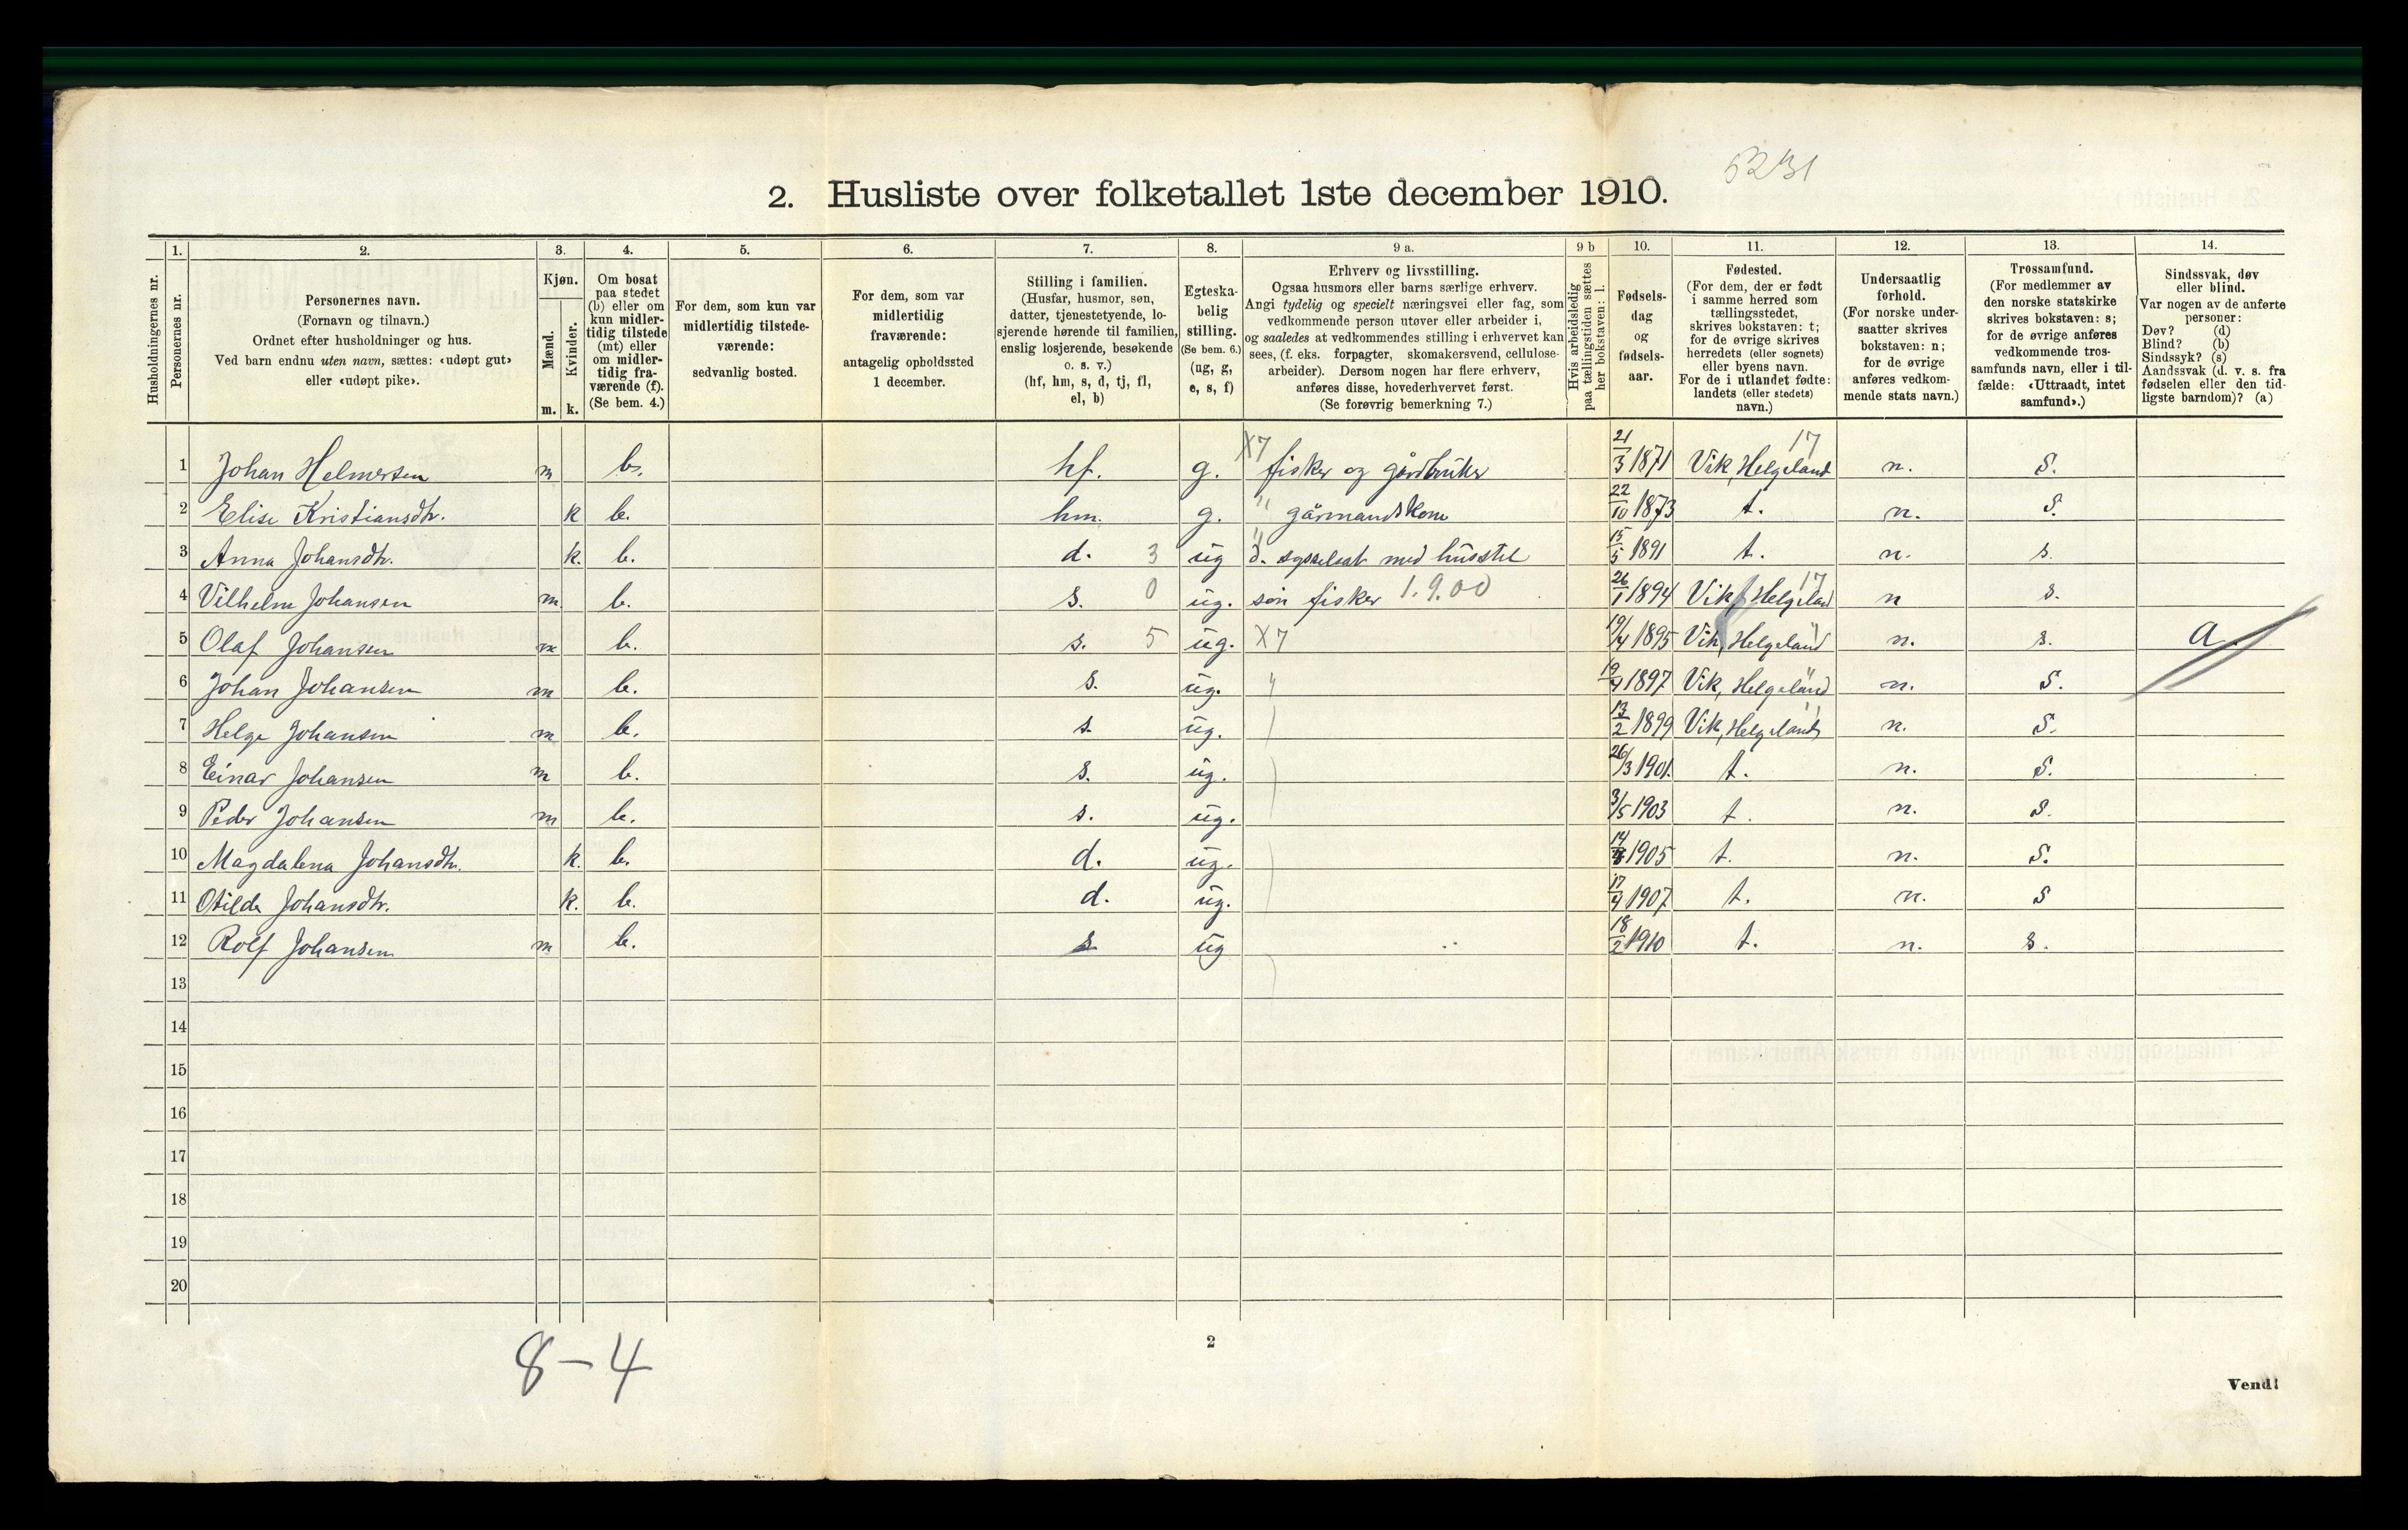 5231
2. Husliste over folketallet 1ste december 1910.
Husholdningernes nr.
1. Personernes nr.
2. Personernes navn.
(Fornavn og tilnavn.)
Ordnet efter husholdninger og hus.
Ved barn endnu uten navn, sættes: «udøpt gut»
eller «udøpt pike».
3. Kjøn.
Mænd. m.
Kvinder. k.
4. Om bosat
paa stedet
(b) eller om
kun midler-
tidig tilstede
(mt) eller
om midler-
tidig fra-
værende (f).
(Se bem. 4.)
5. For dem, som kun var
midlertidig tilstede-
værende:
sedvanlig bosted.
6. For dem, som var
midlertidig
fraværende:
antagelig opholdssted
1 december.
7. Stilling i familien.
(Husfar, husmor, søn,
datter, tjenestetyende, lo-
sjerende hørende til familien,
enslig losjerende, besøkende
o. s. v.)
(hf, hm, s, d, tj, fl,
el, b)
8. Egteska-
belig
stilling.
(Se bem. 6.)
(ug, g,
e, s, f)
9 a. Erhverv og livsstilling.
Ogsaa husmors eller barns særlige erhverv.
Angi tydelig og specielt næringsvei eller fag, som
vedkommende person utøver eller arbeider i,
og saaledes at vedkommendes stilling i erhvervet kan
sees, (f. eks. forpagter, skomakersvend, cellulose-
arbeider). Dersom nogen har flere erhverv,
anføres disse, hovederhvervet først.
(Se forøvrig bemerkning 7.)
9 b Hvis arbeidsledig
paa tællingstiden sættes
her bokstaven: l.
10. Fødsels-
dag
og
fødsels-
aar.
11. Fødested.
(For dem, der er født
i samme herred som
tællingsstedet,
skrives bokstaven: t;
for de øvrige skrives
herredets (eller sognets)
eller byens navn.
For de i utlandet fødte:
landets (eller stedets)
navn.)
12. Undersaatlig
forhold.
(For norske under-
saatter skrives
bokstaven: n;
for de øvrige
anføres vedkom-
mende stats navn.)
13. Trossamfund.
(For medlemmer av
den norske statskirke
skrives bokstaven: s;
for de øvrige anføres
vedkommende tros-
samfunds navn, eller i til-
fælde: «Uttraadt, intet
samfund».)
14. Sindssvak, døv
eller blind.
Var nogen av de anførte
personer:
Døv? (d)
Blind? (b)
Sindssyk? (s)
Aandssvak (d. v. s. fra
fødselen eller den tid-
ligste barndom)? (a)
1 Johan Helmersen m b. hf. g. X7 fisker og gårdbruker 21/3 1871 Vik, Helgeland 17 n. S.
2 Elise Kristiansdtr. k b. hm. g. " gårmandskone 22/10 1873 t. n. S.
3 Anna Johansdtr. k. b. d. 3 ug " d. sysselsat med husstel 15/5 1891 t. n. s.
4 Vilhelm Johansen m b. s. 0 ug. søn fisker 1.9.00 26/1 1894 Vik, Helgeland 17 n s.
5 Olaf Johansen m b. s. 5 ug. X7 19/4 1895 Vik, Helgeland " n. s. a.
6 Johan Johansen m b. s. ug. " 1897 Vik, Helgeland " n. S.
7 Helge Johansen m b. s. ug. 13/2 1899 Vik, Helgeland " n. S.
8 Einar Johansen m b. s. ug. 26/3 1901. t. n. S.
9 Peder Johansen m b. s. ug. 3/5 1903 t. n. S.
10 Magdalena Johansdtr. k. b. d. ug. 1905 t. n. S.
11 Otilde Johansdtr. k. b. d. ug. 17/9 1907 t. n. S
12 Rolf Johansen m b. s ug 18/2 1910 t. n. s.
13
14
15
16
17
18
19
20
8-4
2
Vend!